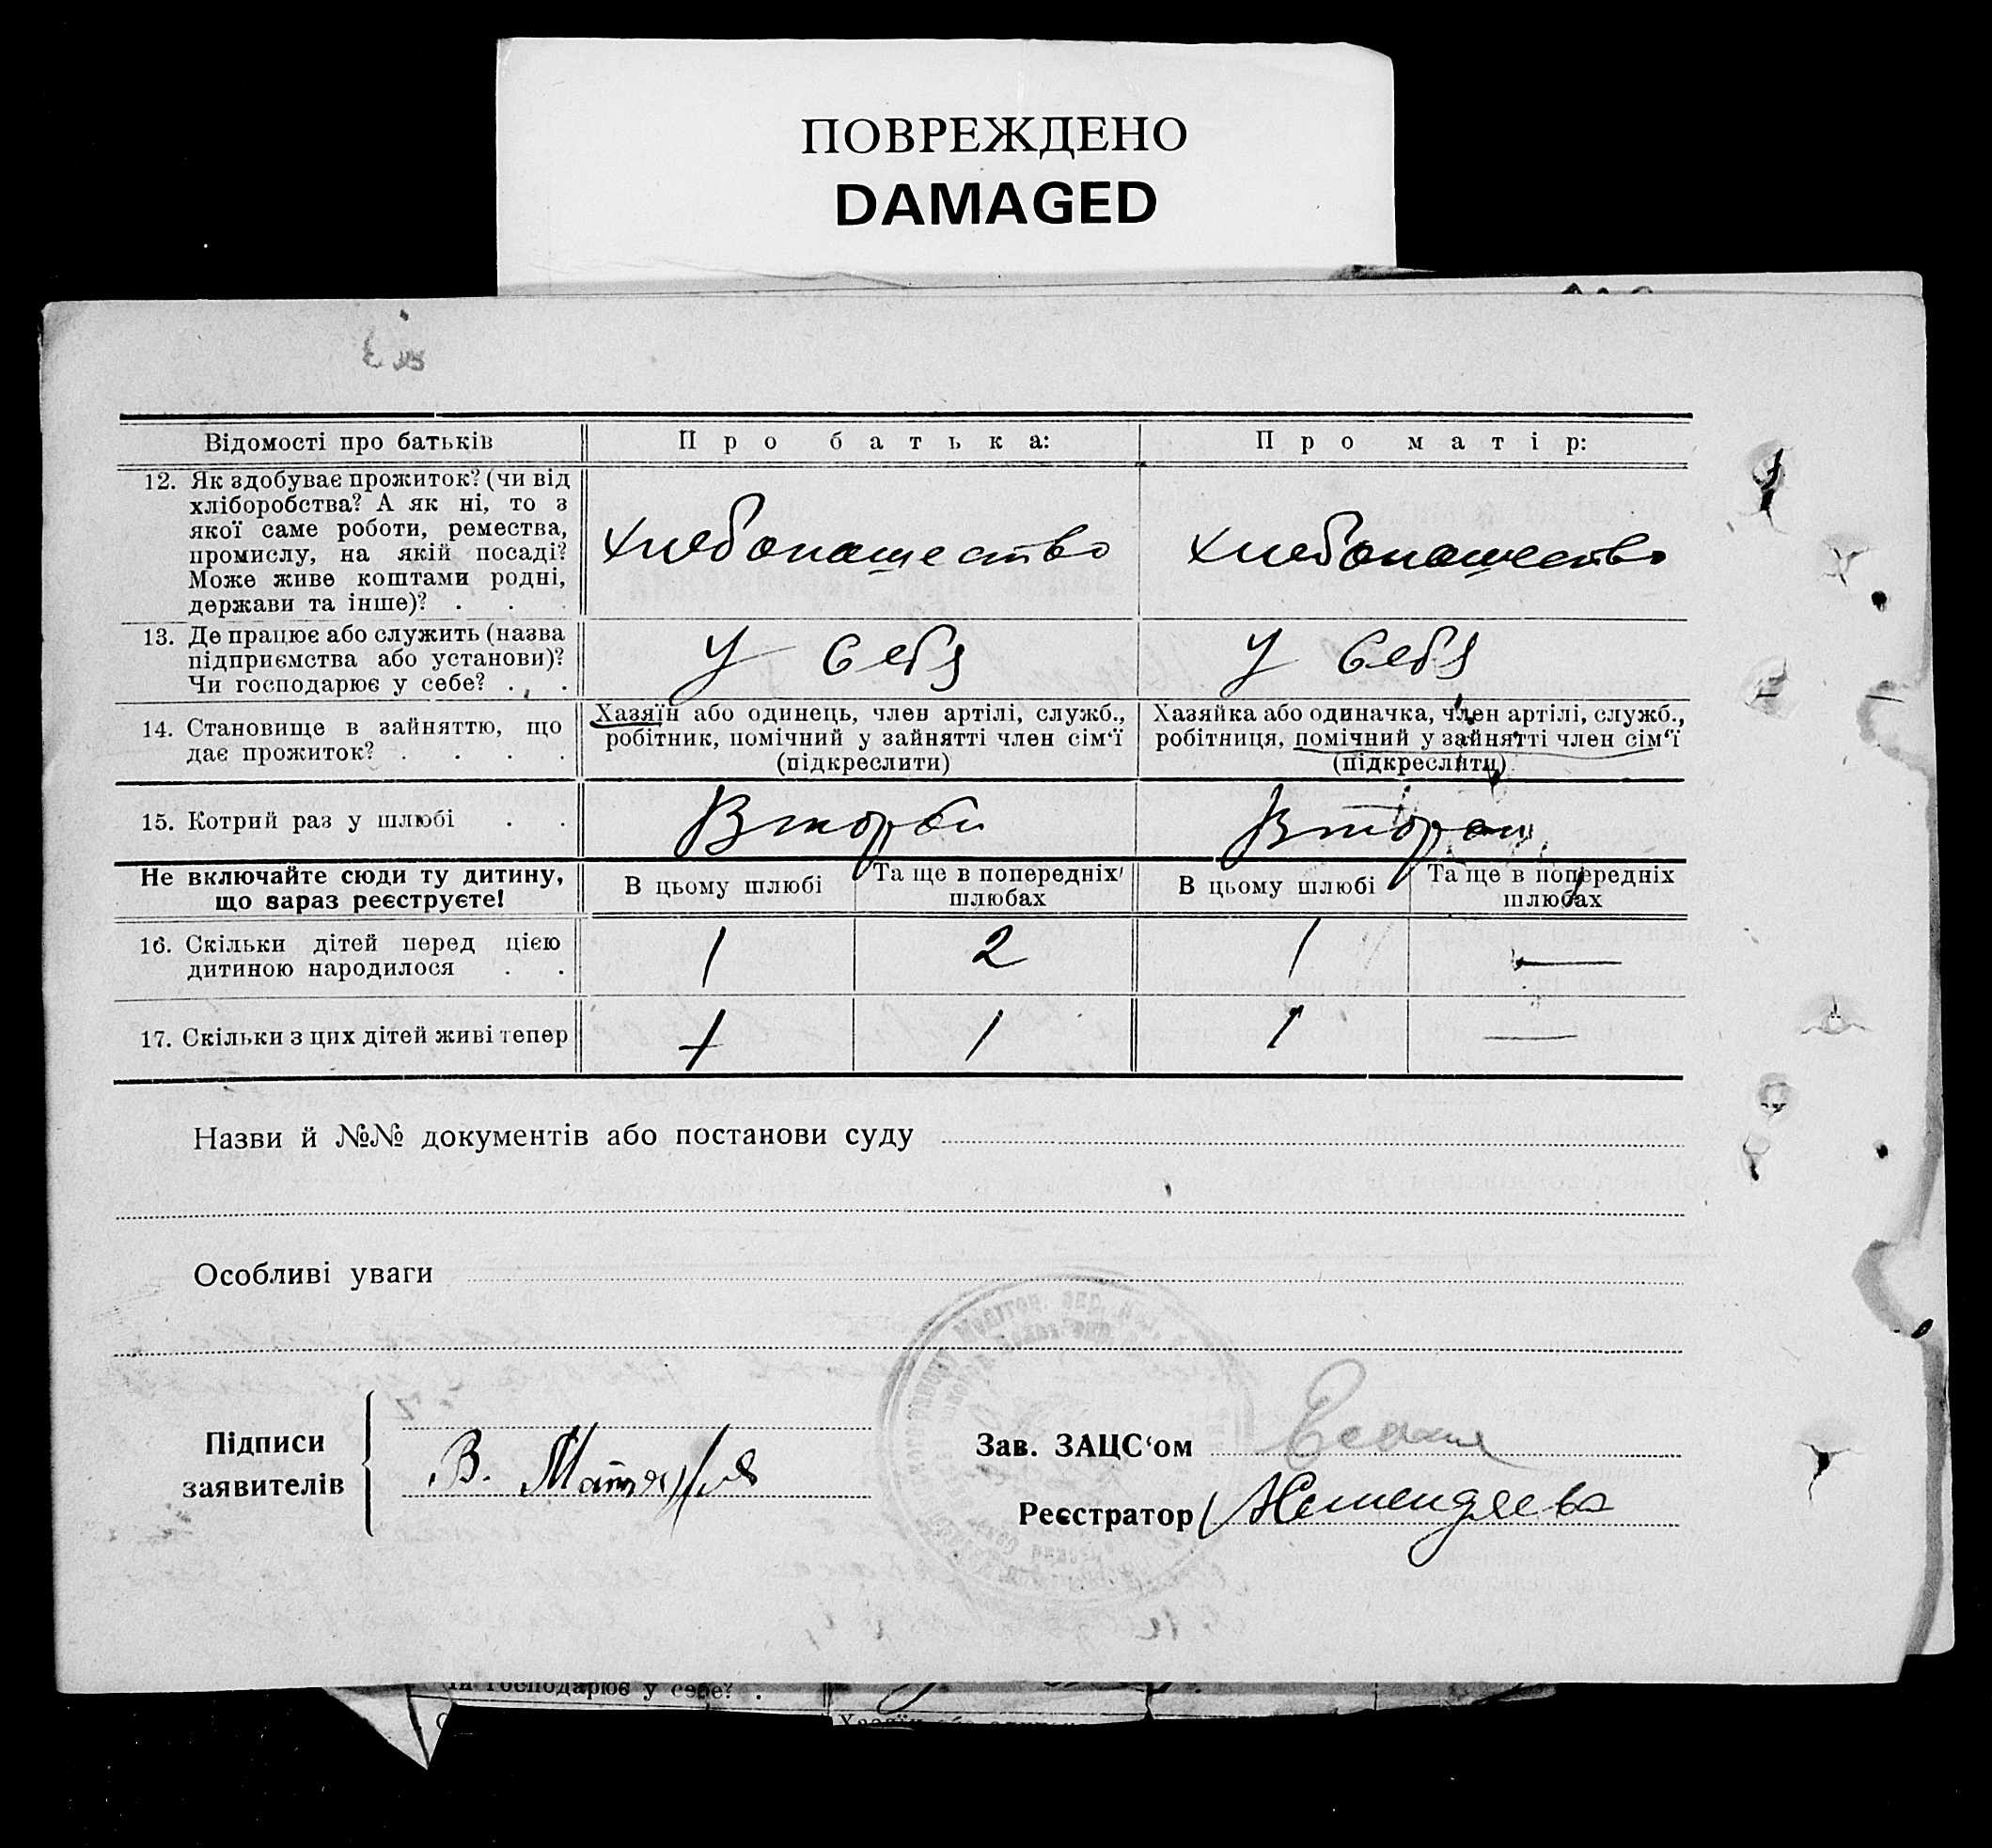 ПОВРЕЖДЕНО
DAMAGED
Відомості про батьків
Про батька:
Про матір:
12. Як здобуває прожиток? (чи від
хліборобства? А як ні, то з
якої саме роботи, ремества,
промислу, на якій посаді?
Може живе коштами родні,
держави та інше)? . . .
хлебопашество
хлебопашество
13. Де працює або служить (назва
підприємства або установи)?
Чи господарює у себе? . . .
У себя
У себя
14. Становище в зайняттю, що
дає прожиток? . . . .
Хазяїн або одинець, член артілі, служб.,
робітник, помічний у зайнятті член сім‘ї
(підкреслити)
Хазяйка або одиначка, член артілі, служб.,
робітниця, помічний у зайнятті член сім‘ї
(підкреслити)
15. Котрий раз у шлюбі . .
Второй
Второй
Не включайте сюди ту дитину,
що зараз реєструєте!
В цьому шлюбі
Та ще в попередніх
шлюбах
В цьому шлюбі
Та ще в попередніх
шлюбах
16. Скільки дітей перед цією
дитиною народилося . .
1
2
1
—
17. Скільки з цих дітей живі тепер
1
1
1
—
Назви й №№ документів або постанови суду
Особливі уваги
Підписи
заявителів
В.
Зав. ЗАЦС‘ом
Реєстратор
Чи господарює у себе? .